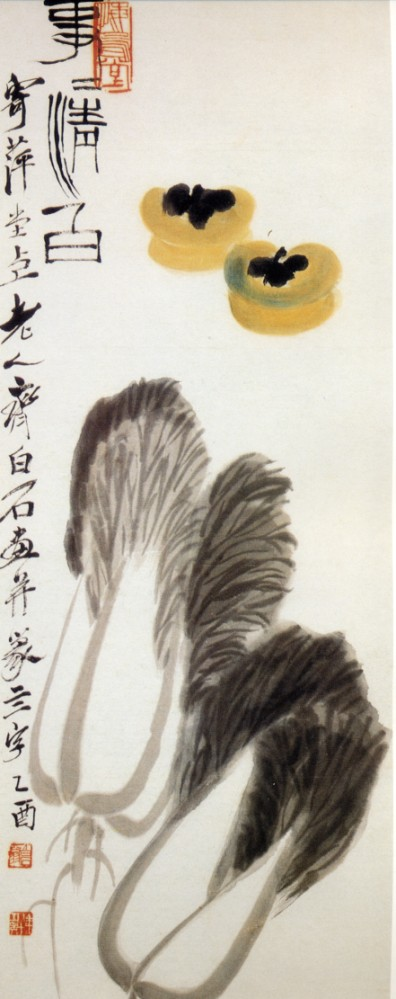 事〻清白
寄萍堂上老人齊白石畫并篆三字乙酉